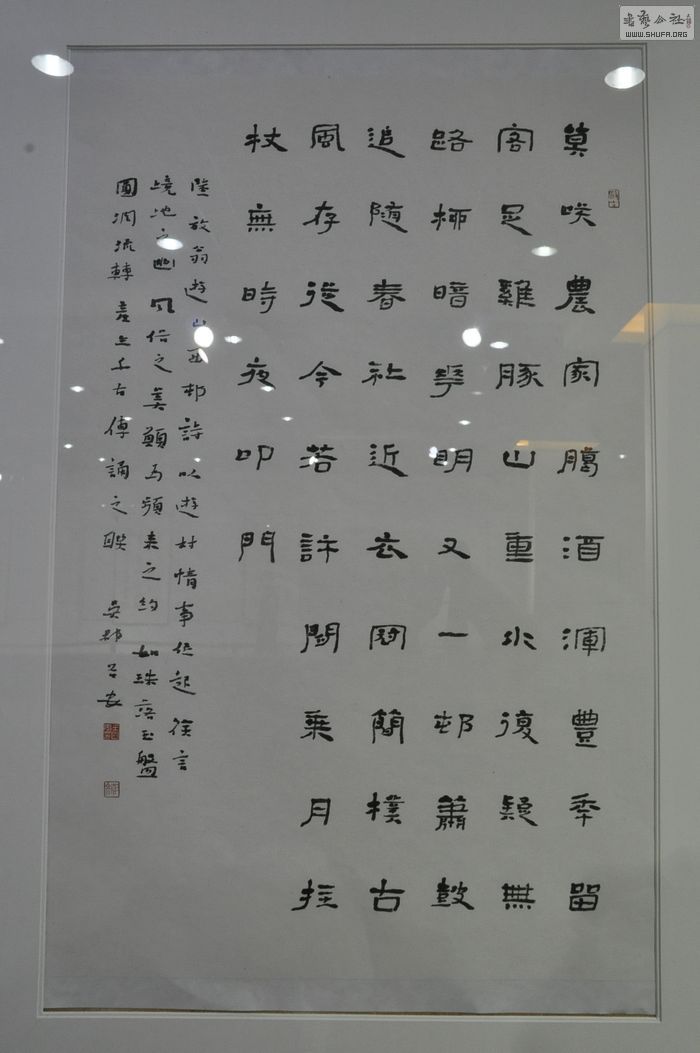 莫咲農家臈酒渾豐年留
客足雞豚山重水復疑無
路柳暗花明又一邨簫鼓
追隨春社近衣冠簡樸古
風存從今若許閒乗月拄
杖無時夜叩門
陸放翁遊山西邨詩以遊村情事作起徐言
境地之幽風俗之美願為頻来之約如珠落玉盤
圓潤流轉 千古傳誦之
吳
WWW.SHUFA.ORG